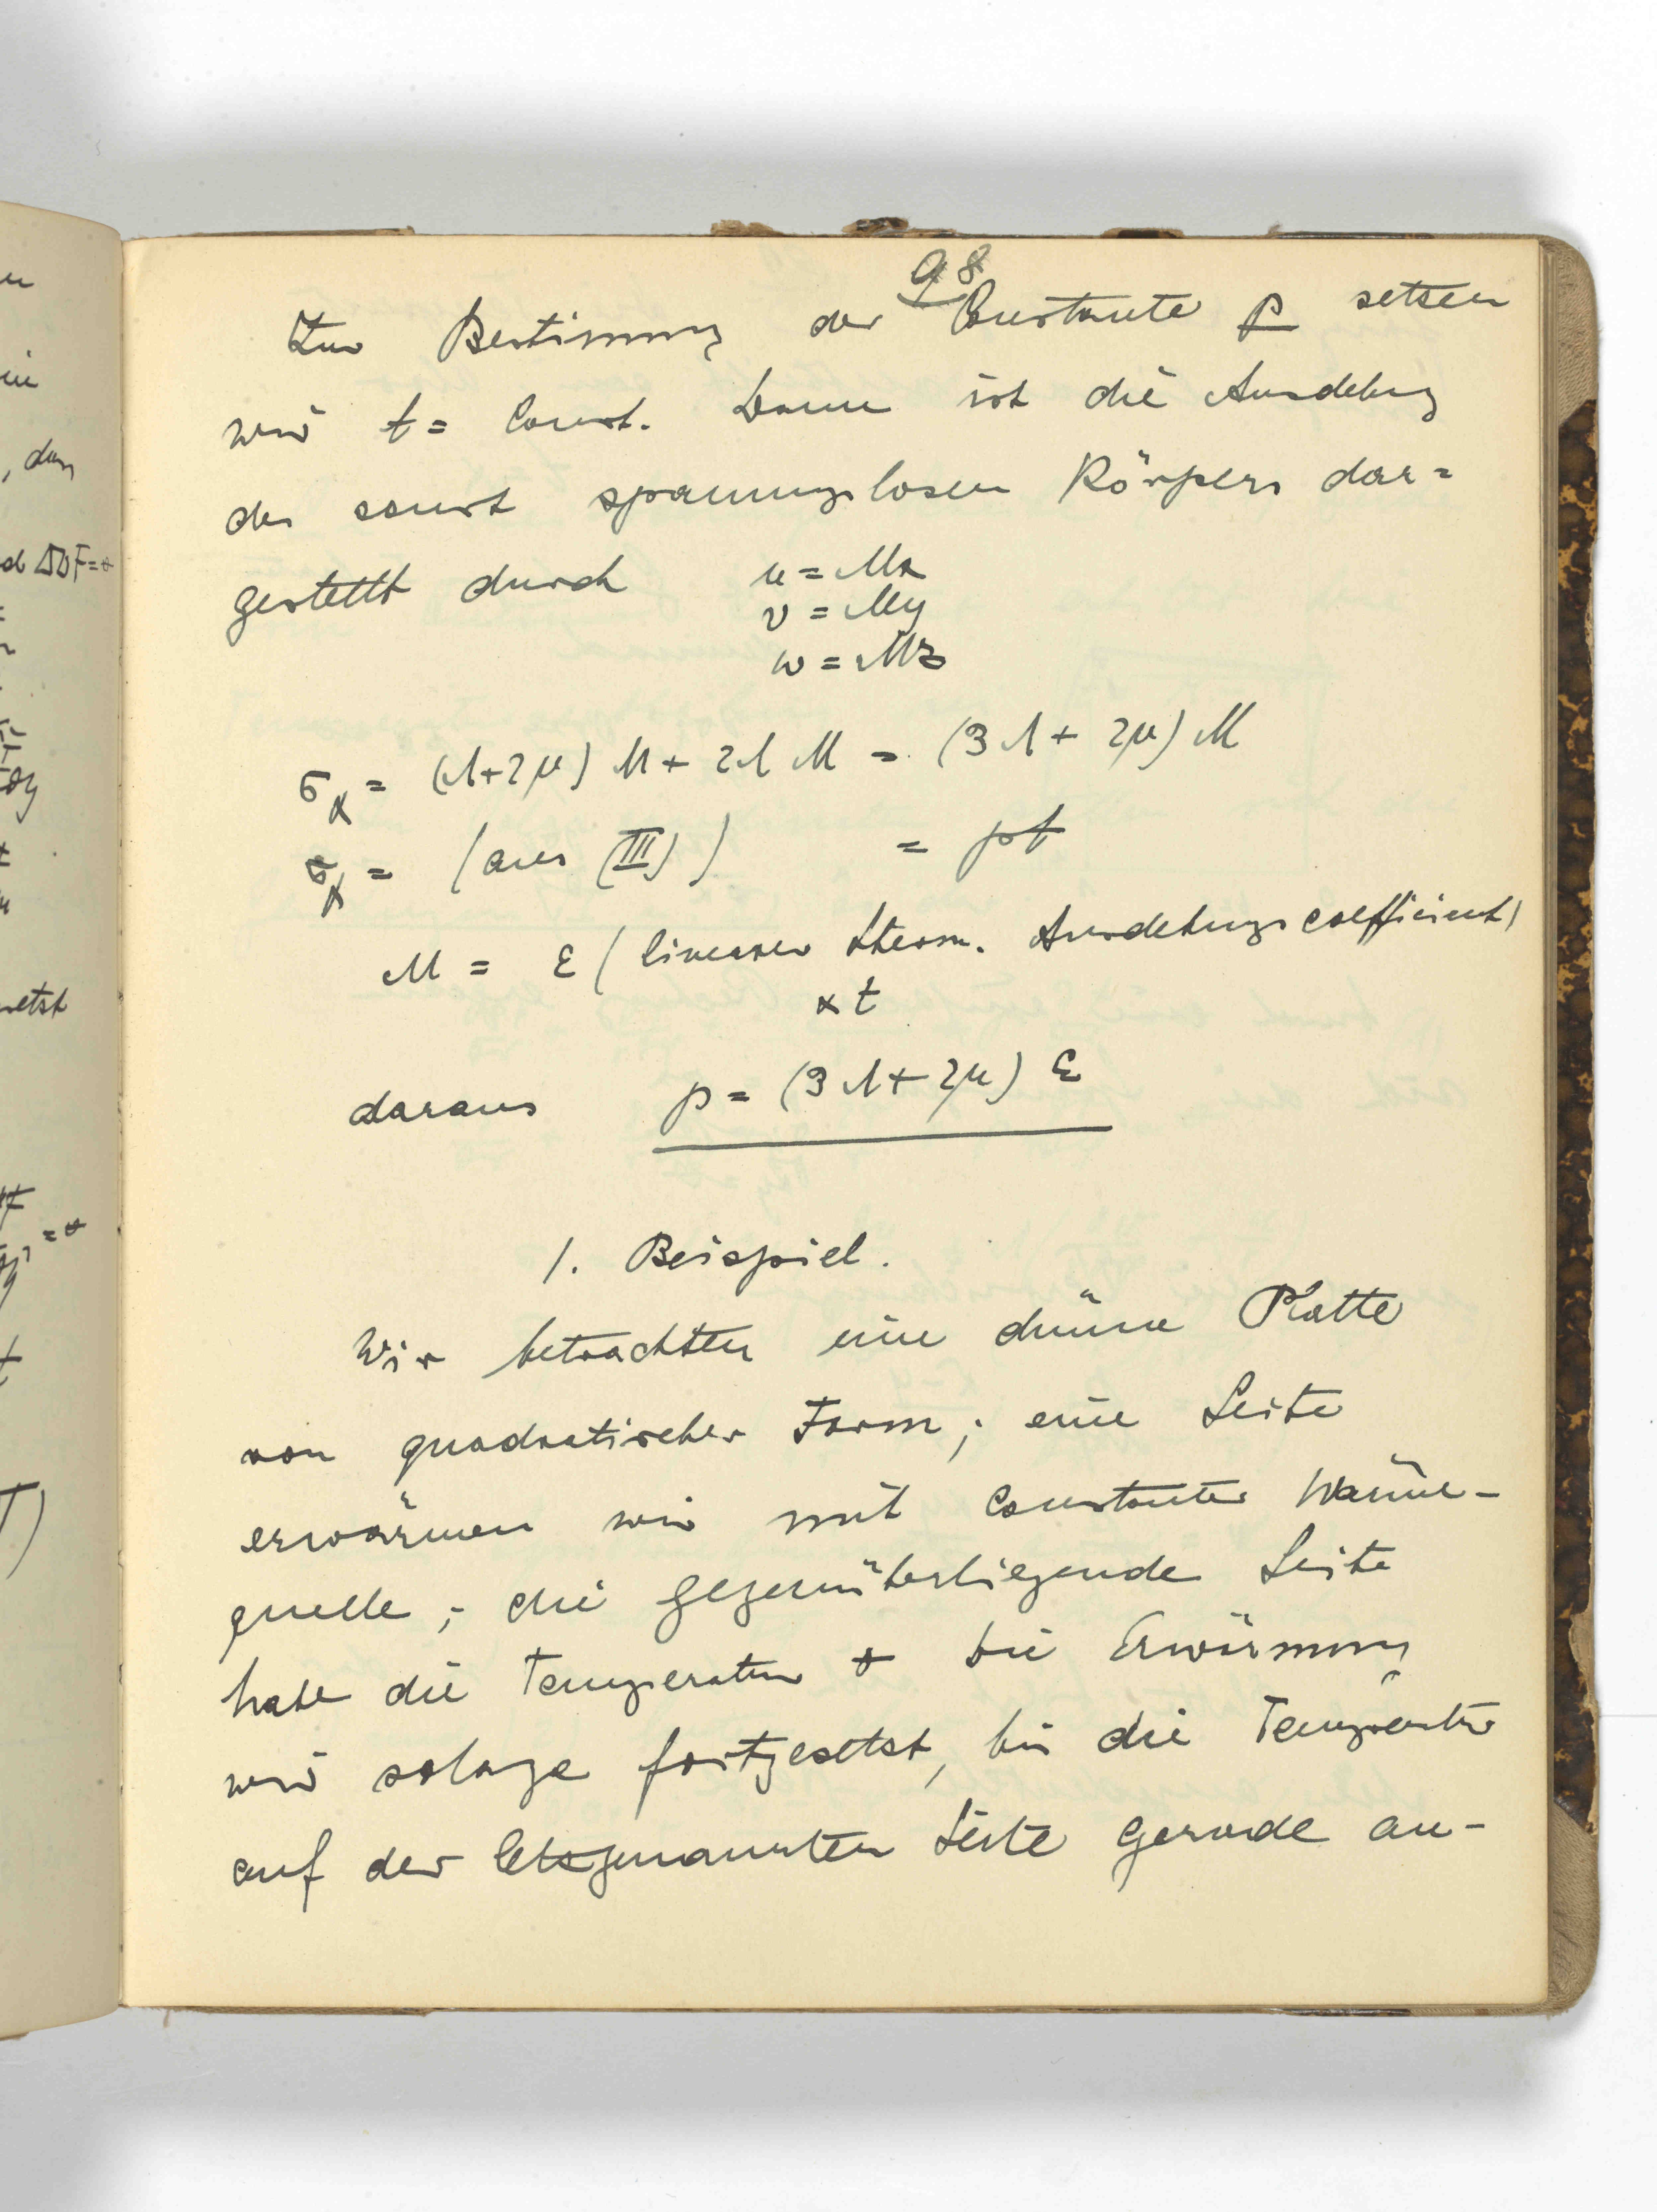 98
Zur Bestimmung der Constante p setzen
wir t = Const. Dann ist die Ausdehng
des sonst spannungslosen Körpers dar=
gestellt durch u = Mx
v = My
w = Mz
σx = (λ+2μ) M + 2λ M = (3λ + 2μ) M
σx = (aus (III)) = pt
M = ε (linearer therm. Ausdehngscoefficient)
x t
daraus p = (3λ + 2μ) ε
1. Beispiel.
Wir betrachten eine dünne Platte
von quadratischer Form; eine Seite
erwärmen wir mit constanter Wärme-
quelle; die gegenüberliegende Seite
habe die Temperatur 0 die Erwärmung
wird solange fortgesetzt, bis die Temperatur
auf der letzgenannten Seite gerade an-
d ΔΔF = 0